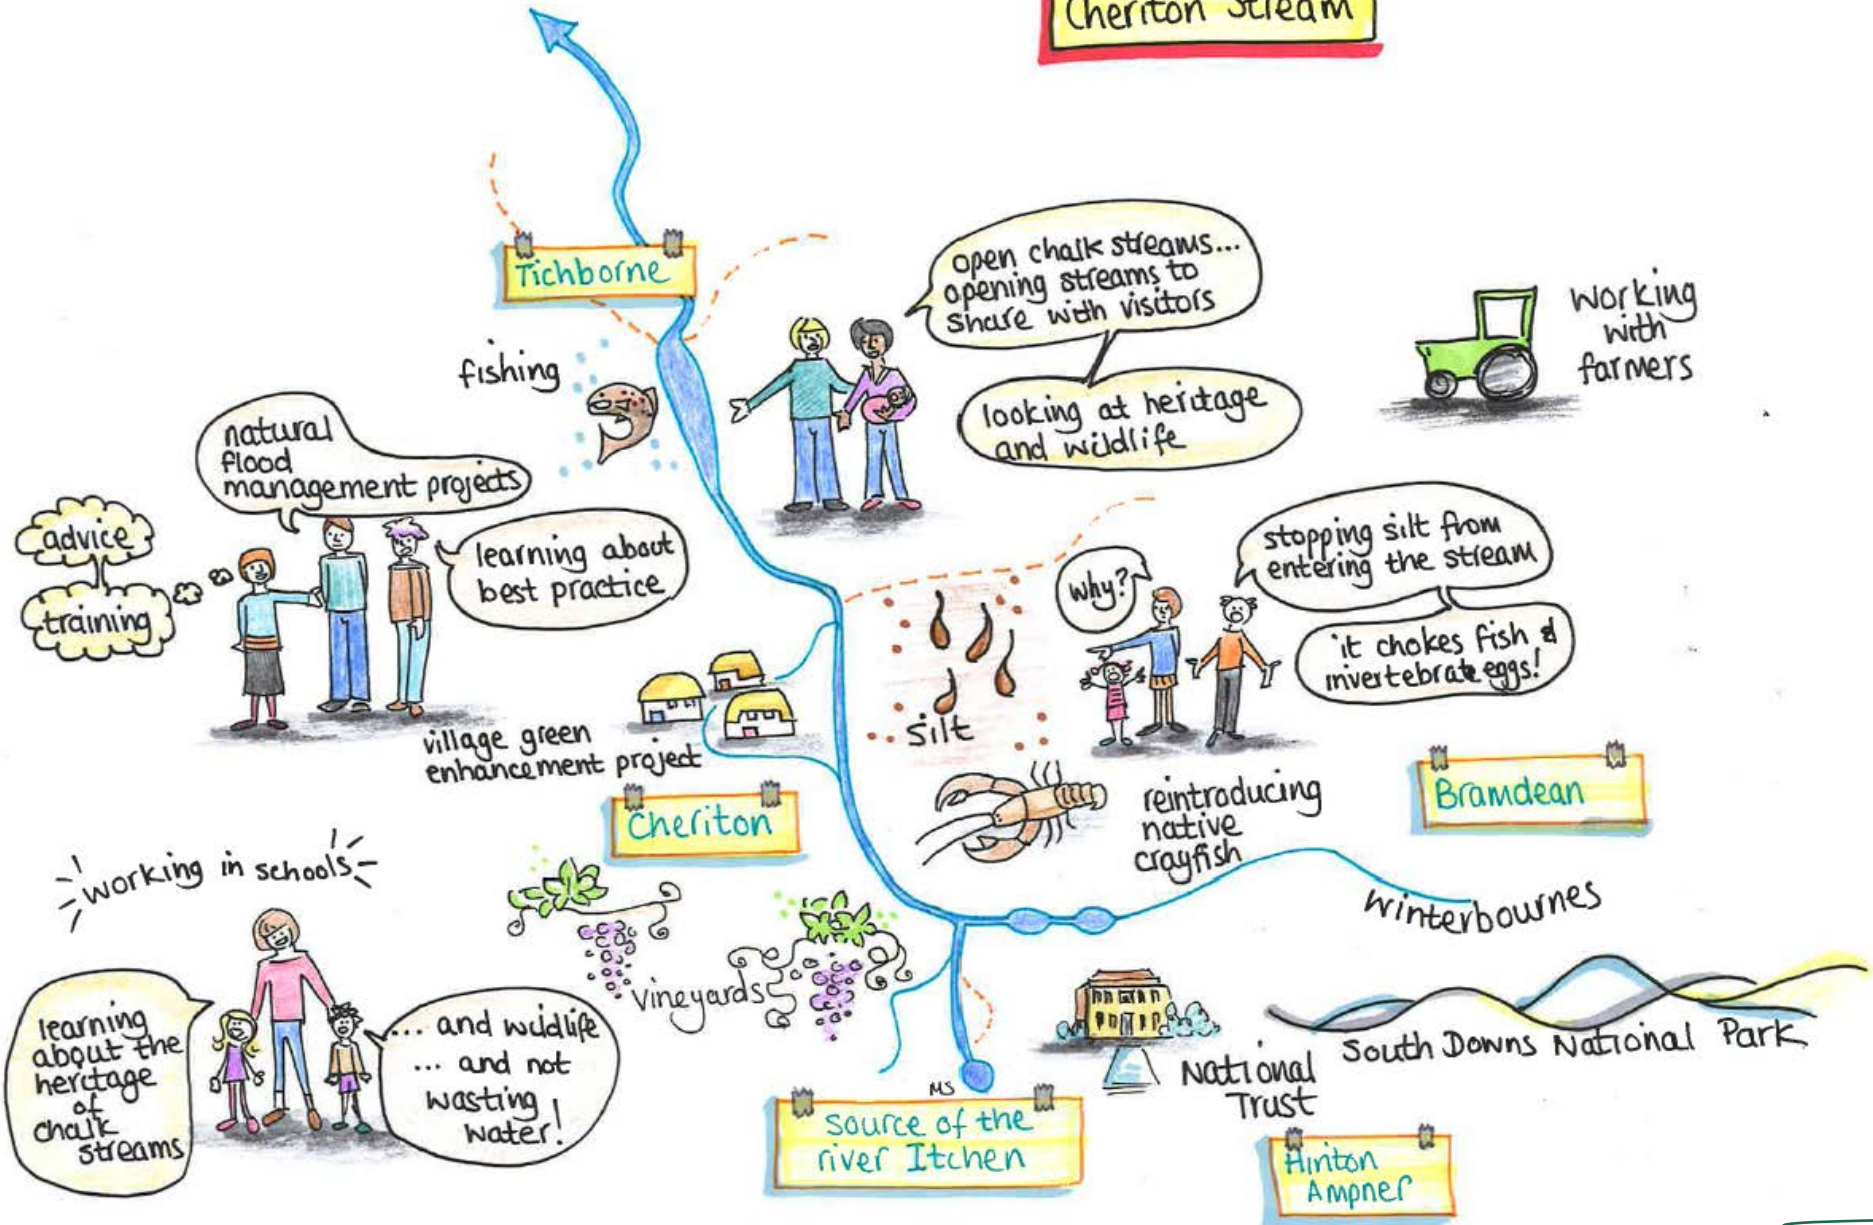 Cheriton Stream
Tichborne
open chalk streams...
opening streams to
share with visitors
looking at heritage
and wildlife
working
with
farmers
fishing
natural
flood
management projects
advice
training
learning about
best practice
why?
stopping silt from
entering the stream
it chokes fish &
invertebrate eggs!
silt
village green
enhancement project
Cheriton
reintroducing
native
crayfish
Bramdean
working in schools
vineyards
winterbournes
learning
about the
heritage
of
chalk
streams
... and wildlife
... and not
wasting
water!
MS
source of the
river Itchen
National
Trust
South Downs National Park
Hinton
Ampner